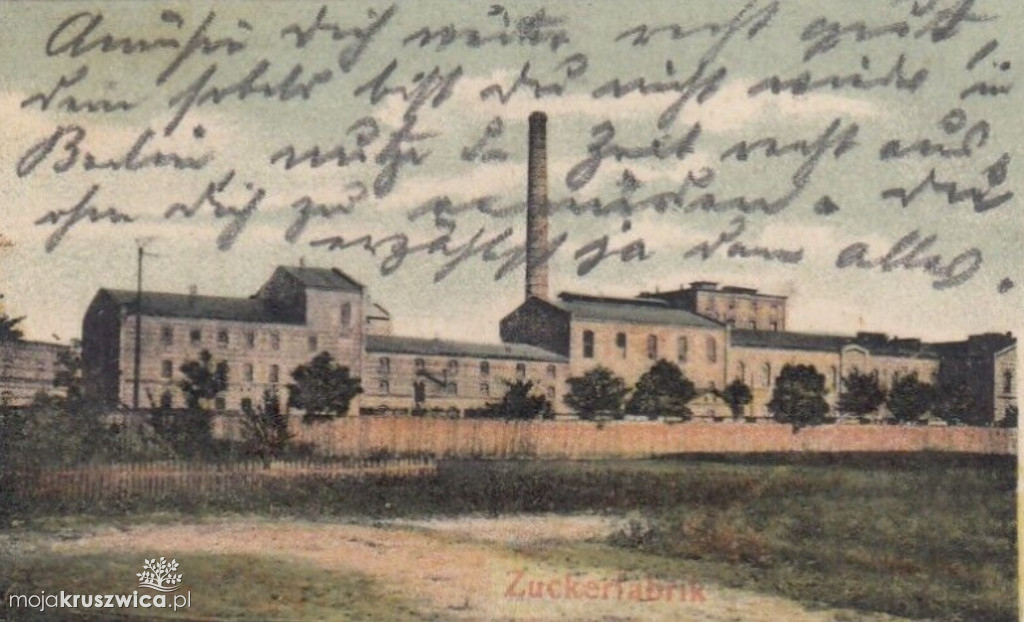 Amüsir Dich weiter recht gut,
dein bist Du nicht wieder in
Berlin, nutze die Zeit recht aus,
ohne Dich zu Du
erzählst ja dann alles.
Zuckerfabrik
mojakruszwica.pl